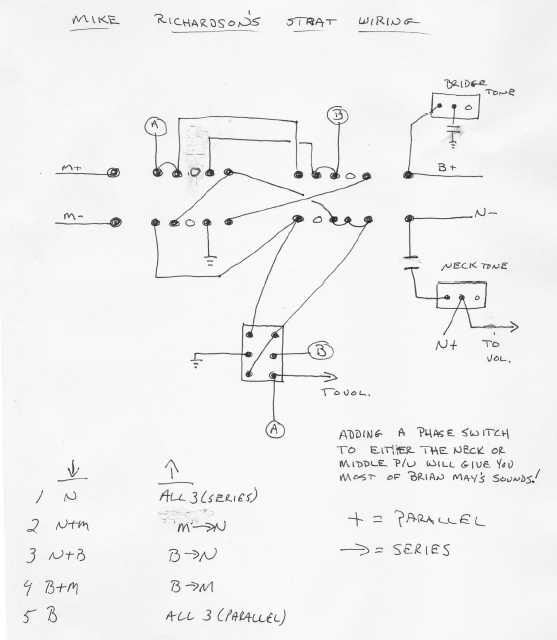 MIKE RICHARDSON'S STRAT WIRING
BRIDGE TONE
A
B
M+
B+
M-
N-
NECK TONE
N+
TO VOL.
B
TO VOL.
A
ADDING A PHASE SWITCH
TO EITHER THE NECK OR
MIDDLE P/U WILL GIVE YOU
MOST OF BRIAN MAY'S SOUNDS!
↓ ↑
1 N ALL 3 (SERIES)
2 N+M M→N
3 N+B B→N
4 B+M B→M
5 B ALL 3 (PARALLEL)
+ = PARALLEL
→ = SERIES